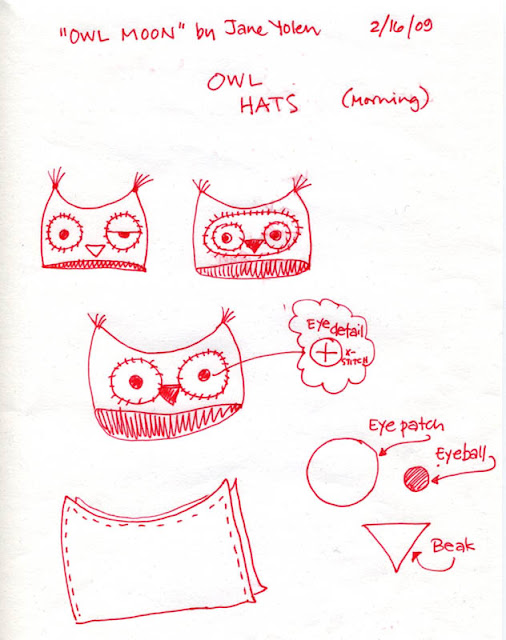 "OWL MOON" by Jane Yolen 2/16/09
OWL
HATS (Morning)
Eye detail
X-
STITCH
Eye patch
Eyeball
Beak